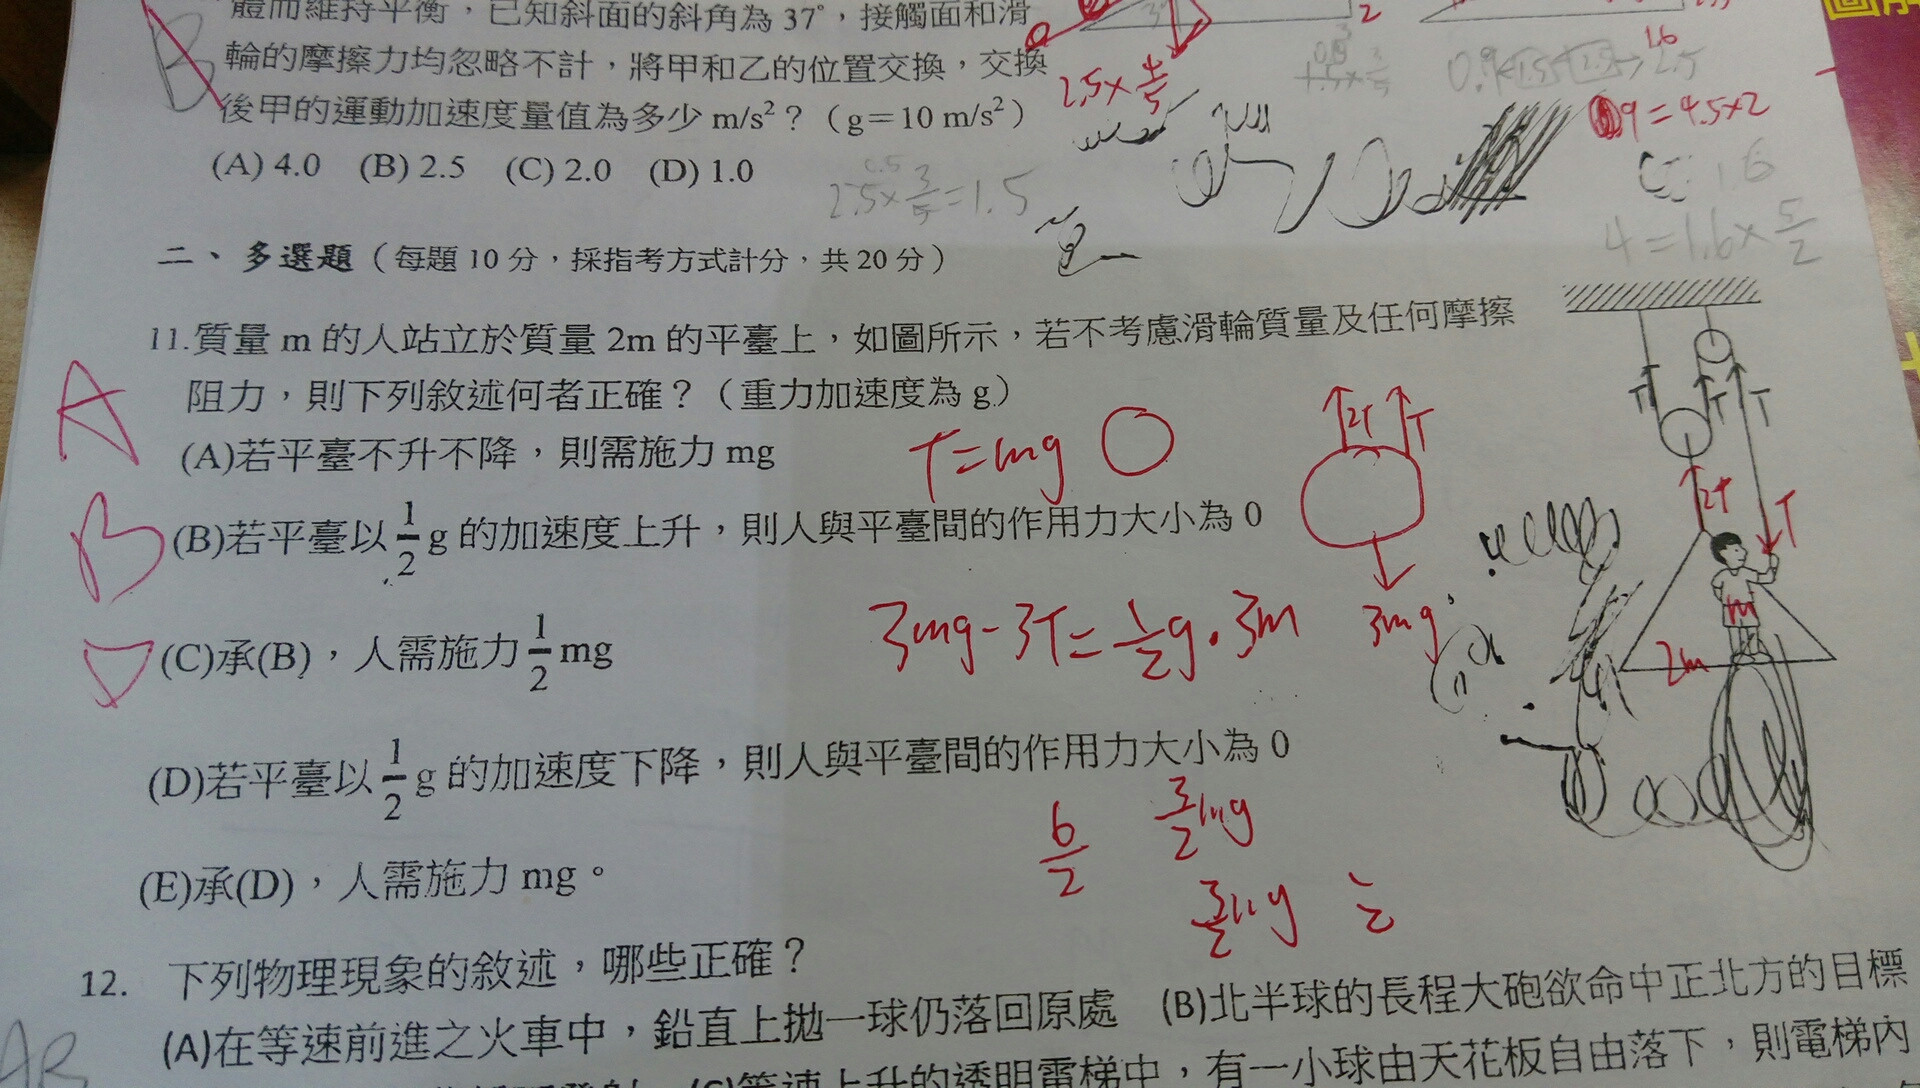 體而維持平衡，已知斜面的斜角為 37°，接觸面和滑
輪的摩擦力均忽略不計，將甲和乙的位置交換，交換
後甲的運動加速度量值為多少 m/s²？（g＝10 m/s²）
(A) 4.0 (B) 2.5 (C) 2.0 (D) 1.0
B
2.5×4/5
2.5×3/5=1.5
2
1.6
2.5
9=4.5×2
1.6
4=1.6×5/2
二、多選題（每題 10 分，採指考方式計分，共 20 分）
11.質量 m 的人站立於質量 2m 的平臺上，如圖所示，若不考慮滑輪質量及任何摩擦
阻力，則下列敘述何者正確？（重力加速度為 g）
A
(A)若平臺不升不降，則需施力 mg
T=mg
2T T
T T T
B
(B)若平臺以 1/2 g 的加速度上升，則人與平臺間的作用力大小為 0
2T T
m
2m
(C)承(B)，人需施力 1/2 mg
3mg-3T=1/2g·3m
3mg
(D)若平臺以 1/2 g 的加速度下降，則人與平臺間的作用力大小為 0
6/2
3/2mg
(E)承(D)，人需施力 mg。
3/2mg
1/2
12. 下列物理現象的敘述，哪些正確？
AB
(A)在等速前進之火車中，鉛直上拋一球仍落回原處 (B)北半球的長程大砲欲命中正北方的目標
(C)等速上升的透明電梯中，有一小球由天花板自由落下，則電梯內